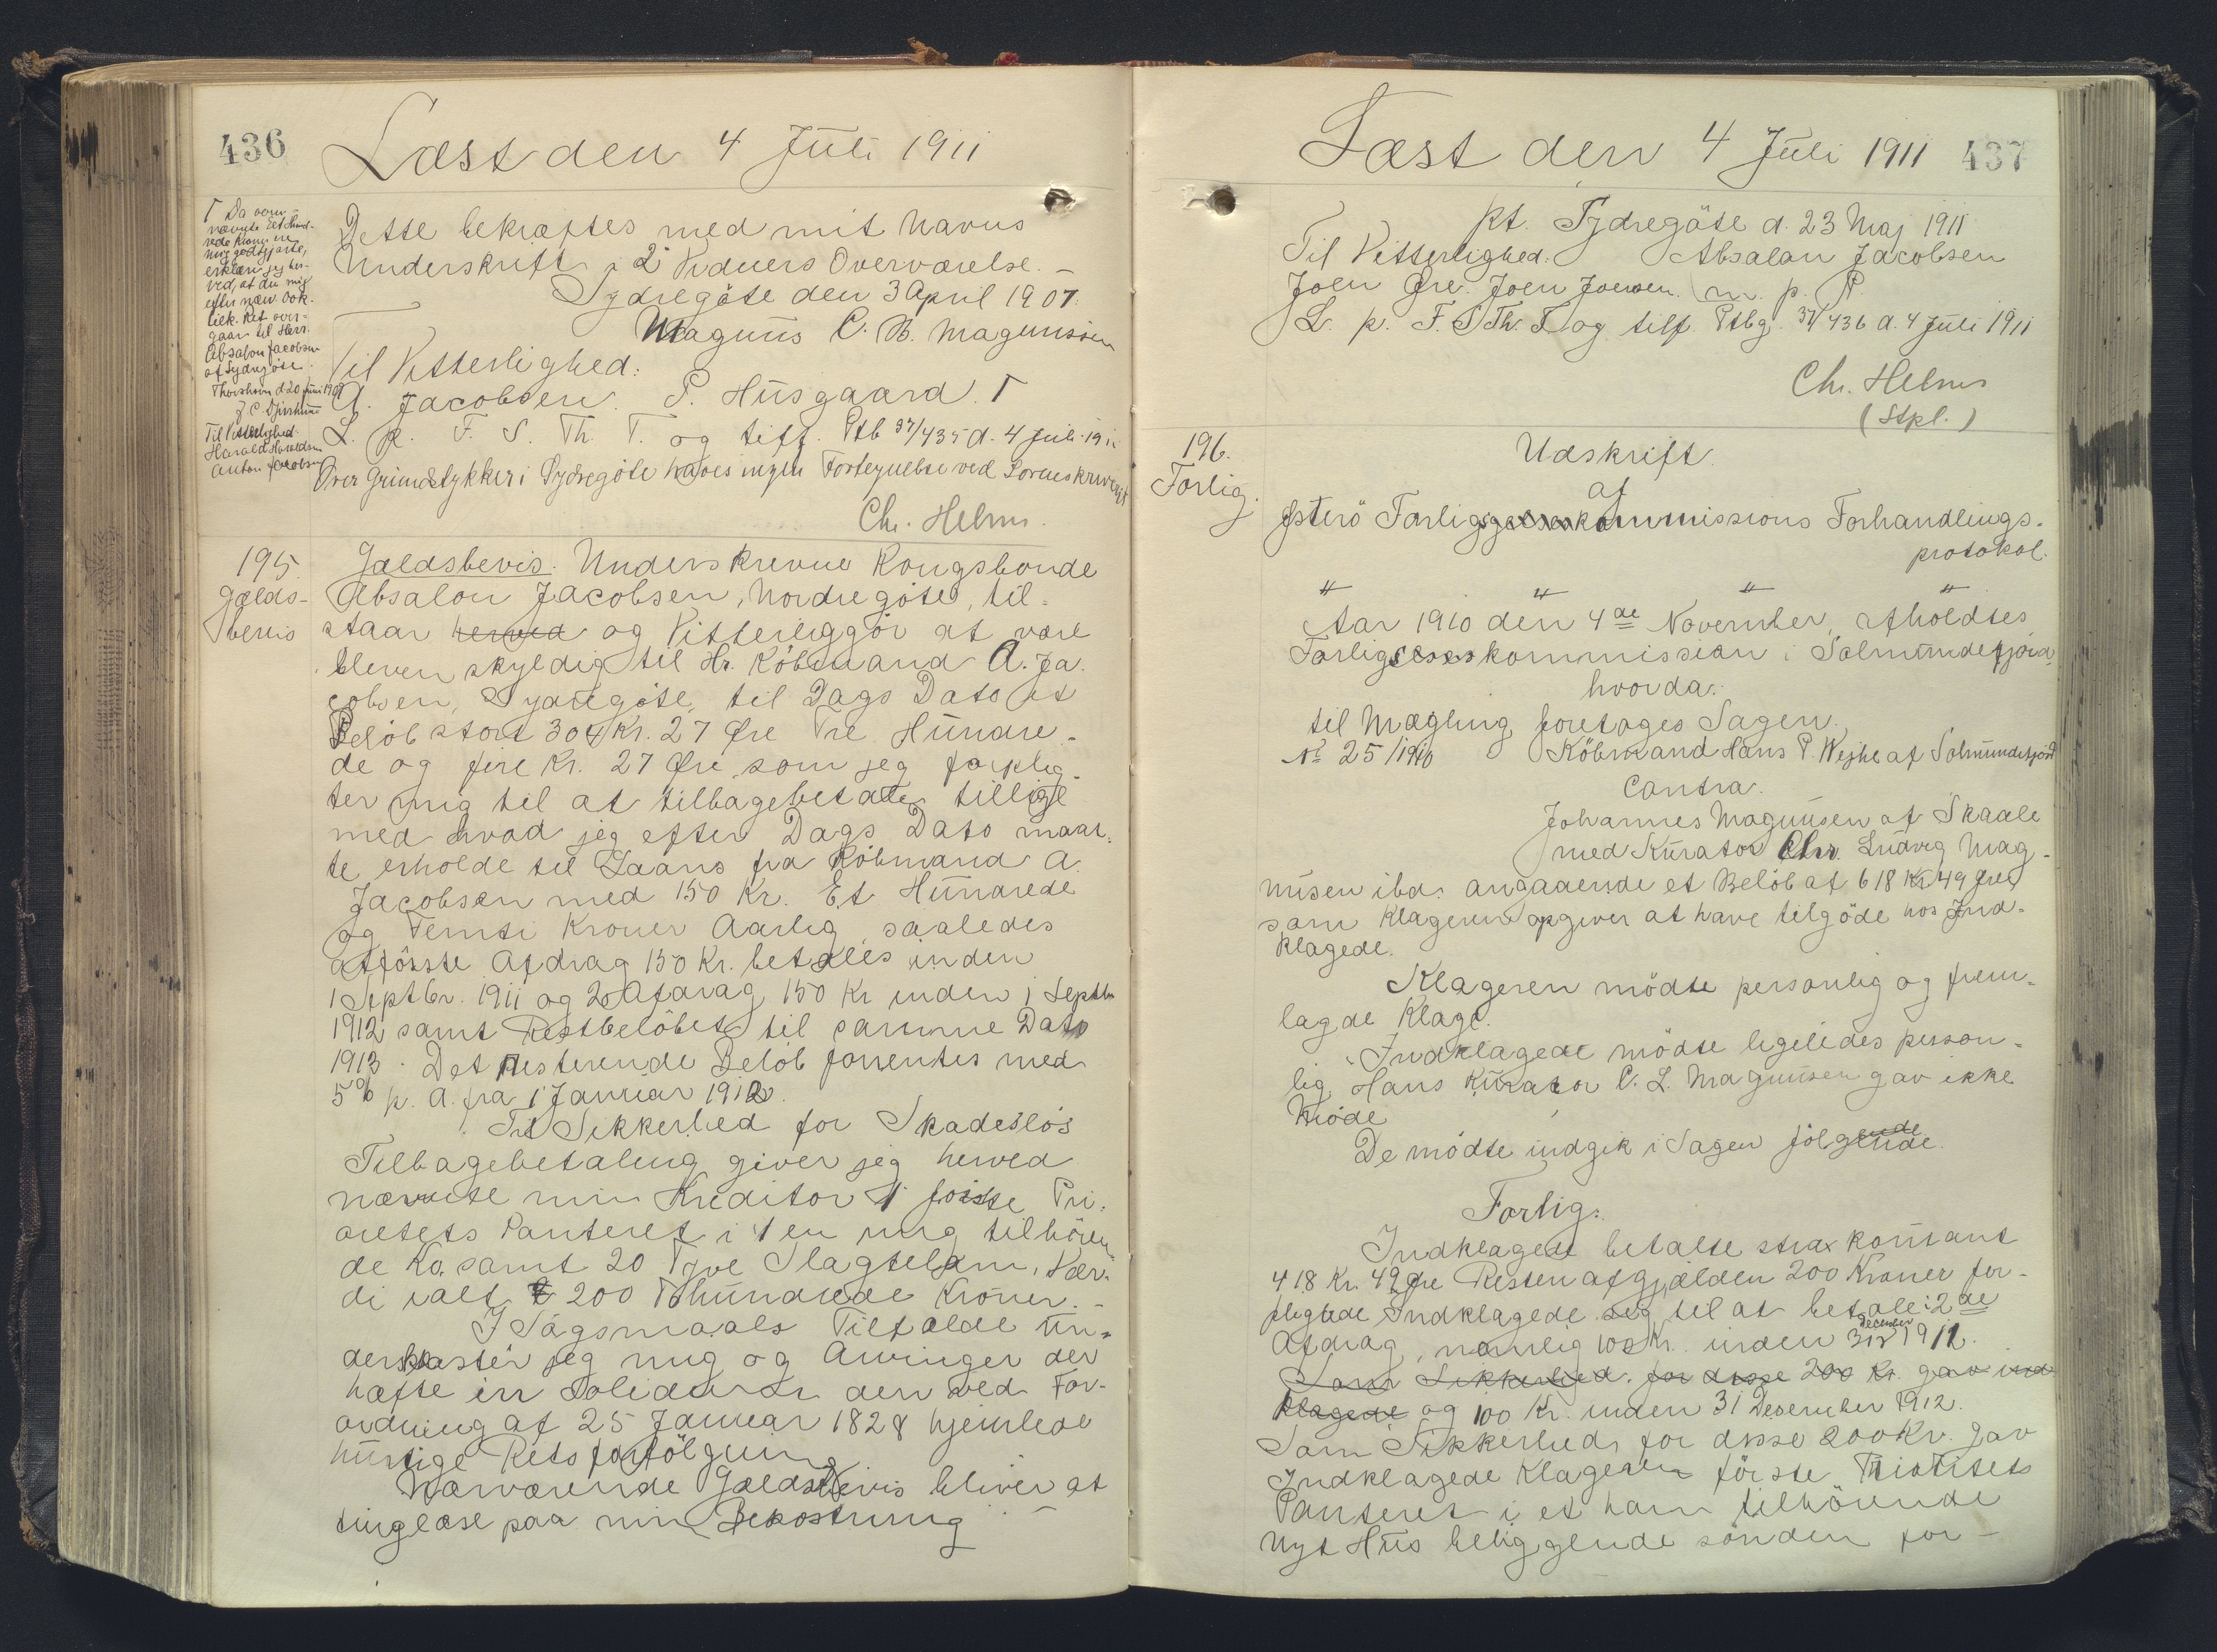 436
Læst den 4 Juli 1911
Γ Da oven-
nævnte Et Hund-
rede Kroner ere
mig godtgjorte,
erklærer jeg her-
ved, at den mig
efter nærv. Ob-
liek. Ret over-
gaar til Herr.
Absalon Jacobsen
af Sydregöte
Thorshavn d 20 Juni 1909
J. C. Djurhuus
Til Vitterlighed.
Harald Haraldsen
Anton Jacobsen
Dette bekræftes med mit Navns
Underskrift i 2 Vidners Overværelse. –
Sydregöte den 3 April 1907.
Magnus C. B. Magnussen
Til Vitterlighed:
A. Jacobsen. P. Husgaard. Γ
L. p. F. S. Th. T. og tilf. Ptb 37/435 d. 4 Juli 1911
Over Grundstykker i Sydregöte haves ingen Fortegnelse ved Sorenskriveriet
Chr. Helms.
195.
Gælds-
bevis
Gældsbevis. Underskrevne Kongsbonde
Absalon Jacobsen, Nordregöte, til-
staar herved og Vitterliggör at være
bleven skyldig til Hr. Köbmand A. Ja-
cobsen, Sydregöte, til Dags Dato et
Belöb stort 304 Kr. 27 Øre Tre Hundre-
de og fire Kr. 27 Øre, som jeg forplig-
ter mig til at tilbagebetale tillige
med hvad jeg efter Dags Dato maat-
te erholde til Laans fra Köbmand A.
Jacobsen med 150 Kr. Et Hundrede
og Femti Kroner Aarlig, saaledes
at förste Afdrag 150 Kr. betales inden
1 Septbr. 1911 og 2det Afdrag 150 Kr inden 1 Septbr
1912 samt Restbelöbet til samme Dato
1913. Det resterende Belöb forrentes med
5% p. A. fra 1 Januar 1912.
Til Sikkerhed for Skadeslös
Tilbagebetaling giver jeg herved
nævnte min Kreditor 1 förste Pri-
oritets Panteret i 1 en mig tilhören-
de Ko. samt 20 Tyve Slagtelam, Vær-
di ialt 200 Tohundrede Kroner. –
I Sögsmaals Tilfælde un-
derkaster jeg mig og Arvinger der
hæfte in solidum den ved For-
ordning af 25 Januar 1828 hjemlede
hurtige Retsforfölgning
Nærværende Gældsbevis bliver at
tinglæse paa min Bekostning –
Læst den 4 Juli 1911
437
pt. Sydregöte d. 23 Maj 1911
Til Vitterlighed: Absalon Jacobsen
Joen Øre. Joen Joensen. m. p. P.
L. p. F. S Th. T og tilf. Ptbg. 37/436 d. 4 Juli 1911
Chr. Helms
(Stpl.)
196.
Forlig.
Udskrift
af
Østerö Forligskommissions Forhandlings-
protokol.
" " " "
Aar 1910 den 4de November, afholdtes
Forligskommission i Solmundefjord,
hvorda:
til Mægling foretages Sagen.
No 25/1910 Köbmand Hans P. Wejhe af Solmundefjord
Contra.
Johannes Magnusen af Skaale
med Kurator Chr. Ludvig Mag-
nusen ibd. angaaende et Belöb af 618 Kr 49 Øre,
som Klageren opgiver at have tilgöde hos Ind-
klagede.
Klageren mödte personlig og frem-
lagde Klage.
Indklagede mödte ligeledes person-
lig. Hans Kurator C. L. Magnusen gav ikke
Möde
De mödte indgik i Sagen fölgende
Forlig:
Indklagede betalte strax kontant
418 Kr. 49 Øre Resten af Gjælden 200 Kroner for-
pligtede Indklagede sig til at betale i 2de
Afdrag, nemlig 100 Kr. inden 31 December 1911.
Som Sikkerhed for disse 200 Kr. gav ind-
klagede og 100 Kr. inden 31 Desember 1912.
Som Sikkerhed for disse 200 Kr. gav
Indklagede Klageren förste Prioritets
Panteret i et ham tilhörende
Nyt Hus beliggende sönden for –